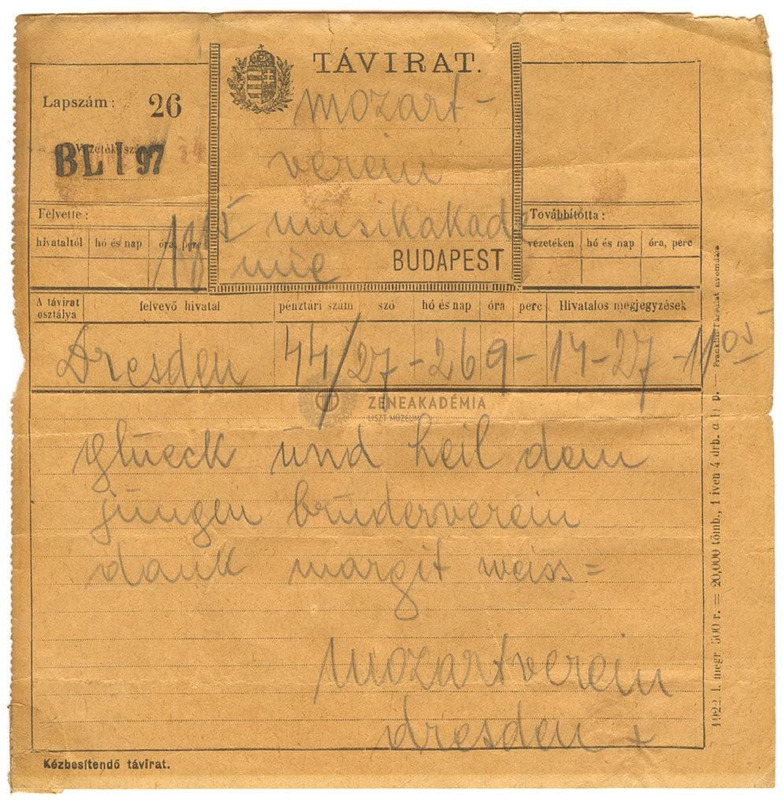 TÁVIRAT.
Lapszám: 26
mozart-
BL I 97
verein
Felvette:
musikakade
Továbbította:
hivataltól hó és nap óra, perc
mie
BUDAPEST
vezetéken hó és nap óra, perc
A távirat osztálya felvevő hivatal pénztári szám szó hó és nap óra perc Hivatalos megjegyzések
Dresden 44/27-26 9-14-27-11 05
ZENEAKADÉMIA
LISZT MÚZEUM
glueck und heil dem
jungen bruderverein
dank margit weiss=
Mozartverein
dresden +
Kézbesítendő távirat.
1922. I. megr. 500 r. = 20,000 tömb., 1 íven 4 drb.